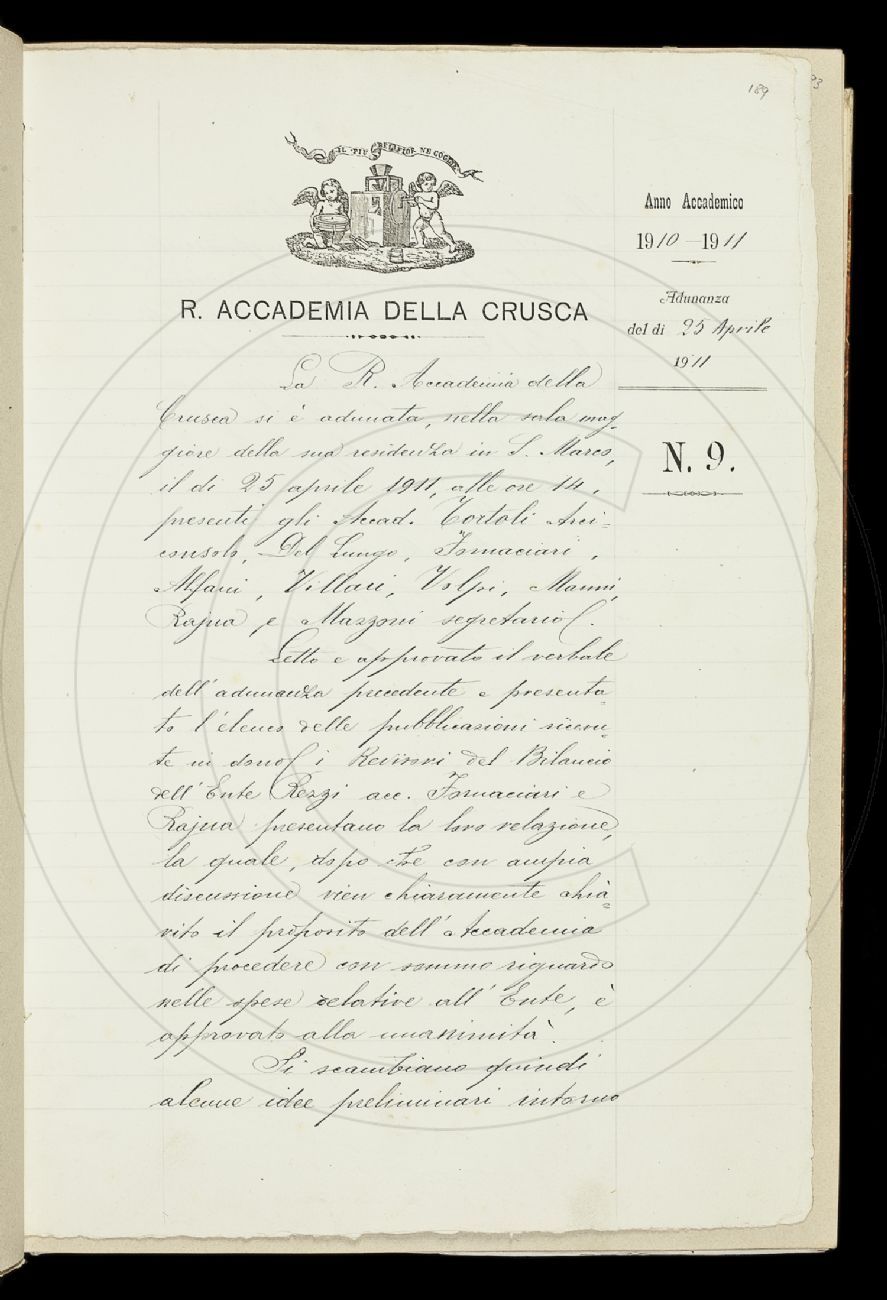 189
93
IL PIÙ BEL FIOR NE COGLIE
Anno Accademico
1910-1911
Adunanza
del dì 25 Aprile
1911
N. 9.
R. ACCADEMIA DELLA CRUSCA
La R. Accademia della
Crusca si è adunata, nella sala mag-
giore della sua residenza in S. Marco,
il dì 25 aprile 1911, alle ore 14,
presenti gli Accad. Tortoli Arci=
consolo, Del Lungo, Fornaciari,
Alfani, Villari, Volpi, Manni,
Rajna, e Mazzoni segretario.
Letto e approvato il verbale
dell'adunanza precedente e presenta=
to l'elenco delle pubblicazioni ricevu=
te in dono i Revisori del Bilancio
dell'Ente Rezzi acc. Fornaciari e
Rajna presentano la loro relazione,
la quale, dopo che con ampia
discussione vien chiaramente chia=
rito il proposito dell'Accademia
di procedere con sommo riguardo
nelle spese relative all'Ente, è
approvato alla unanimità.
Si scambiano quindi
alcune idee preliminari intorno